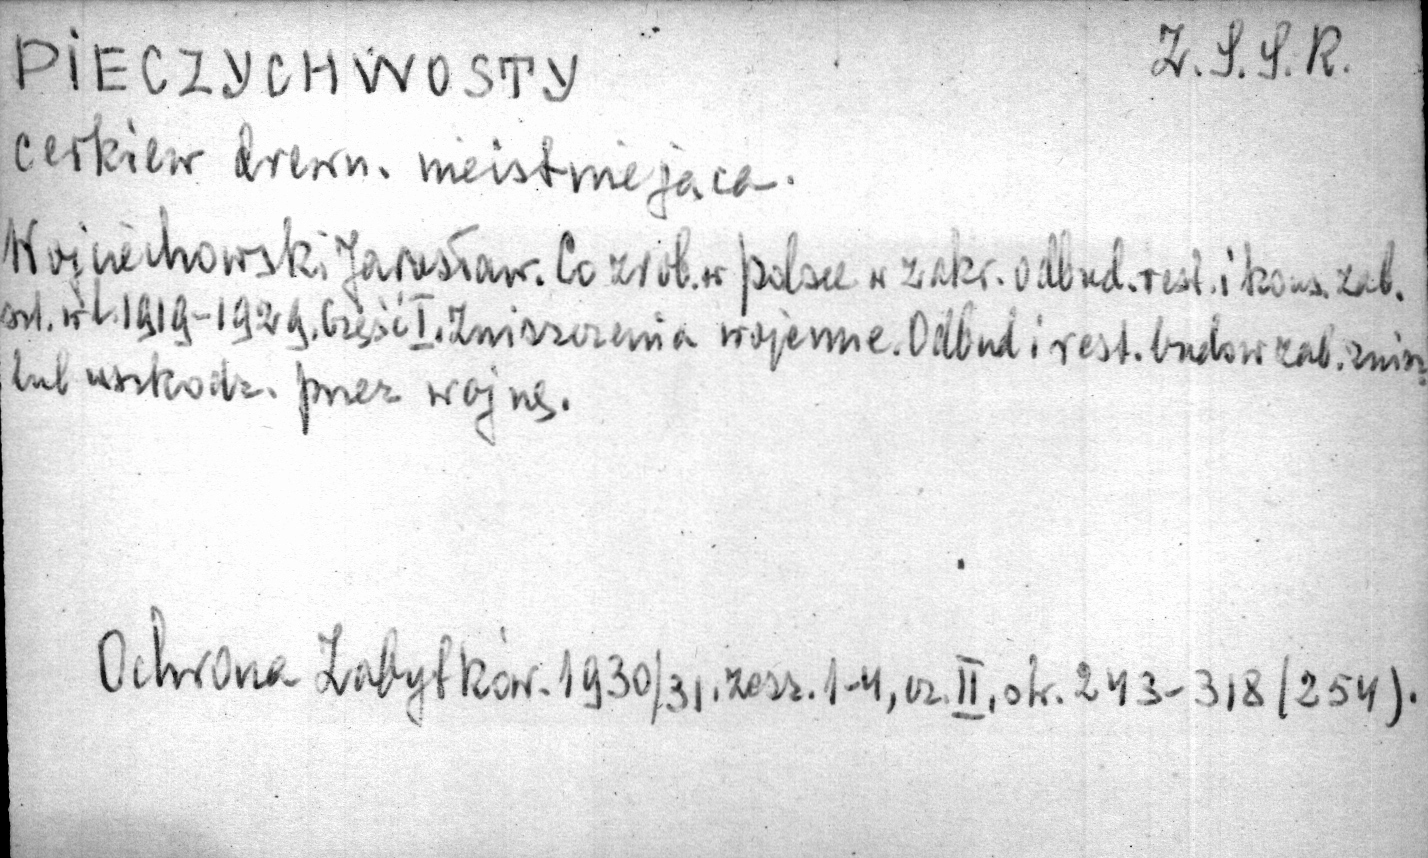 PIECZYCHWOSTY
Z.S.S.R.
cerkiew drewn. nieistniejąca.
Wojciechowski Jarosław. Co zrob. w polsce w zakr. odbud. rest. i kons. zab.
szt. w l. 1919-1929. Część I. Zniszczenia wojenne. Odbud i rest. budow zab. znisz
lub uszkodz. przez wojnę.
Ochrona Zabytków. 1930/31. zesz. 1-4, cz. II, str. 243-318 (254).